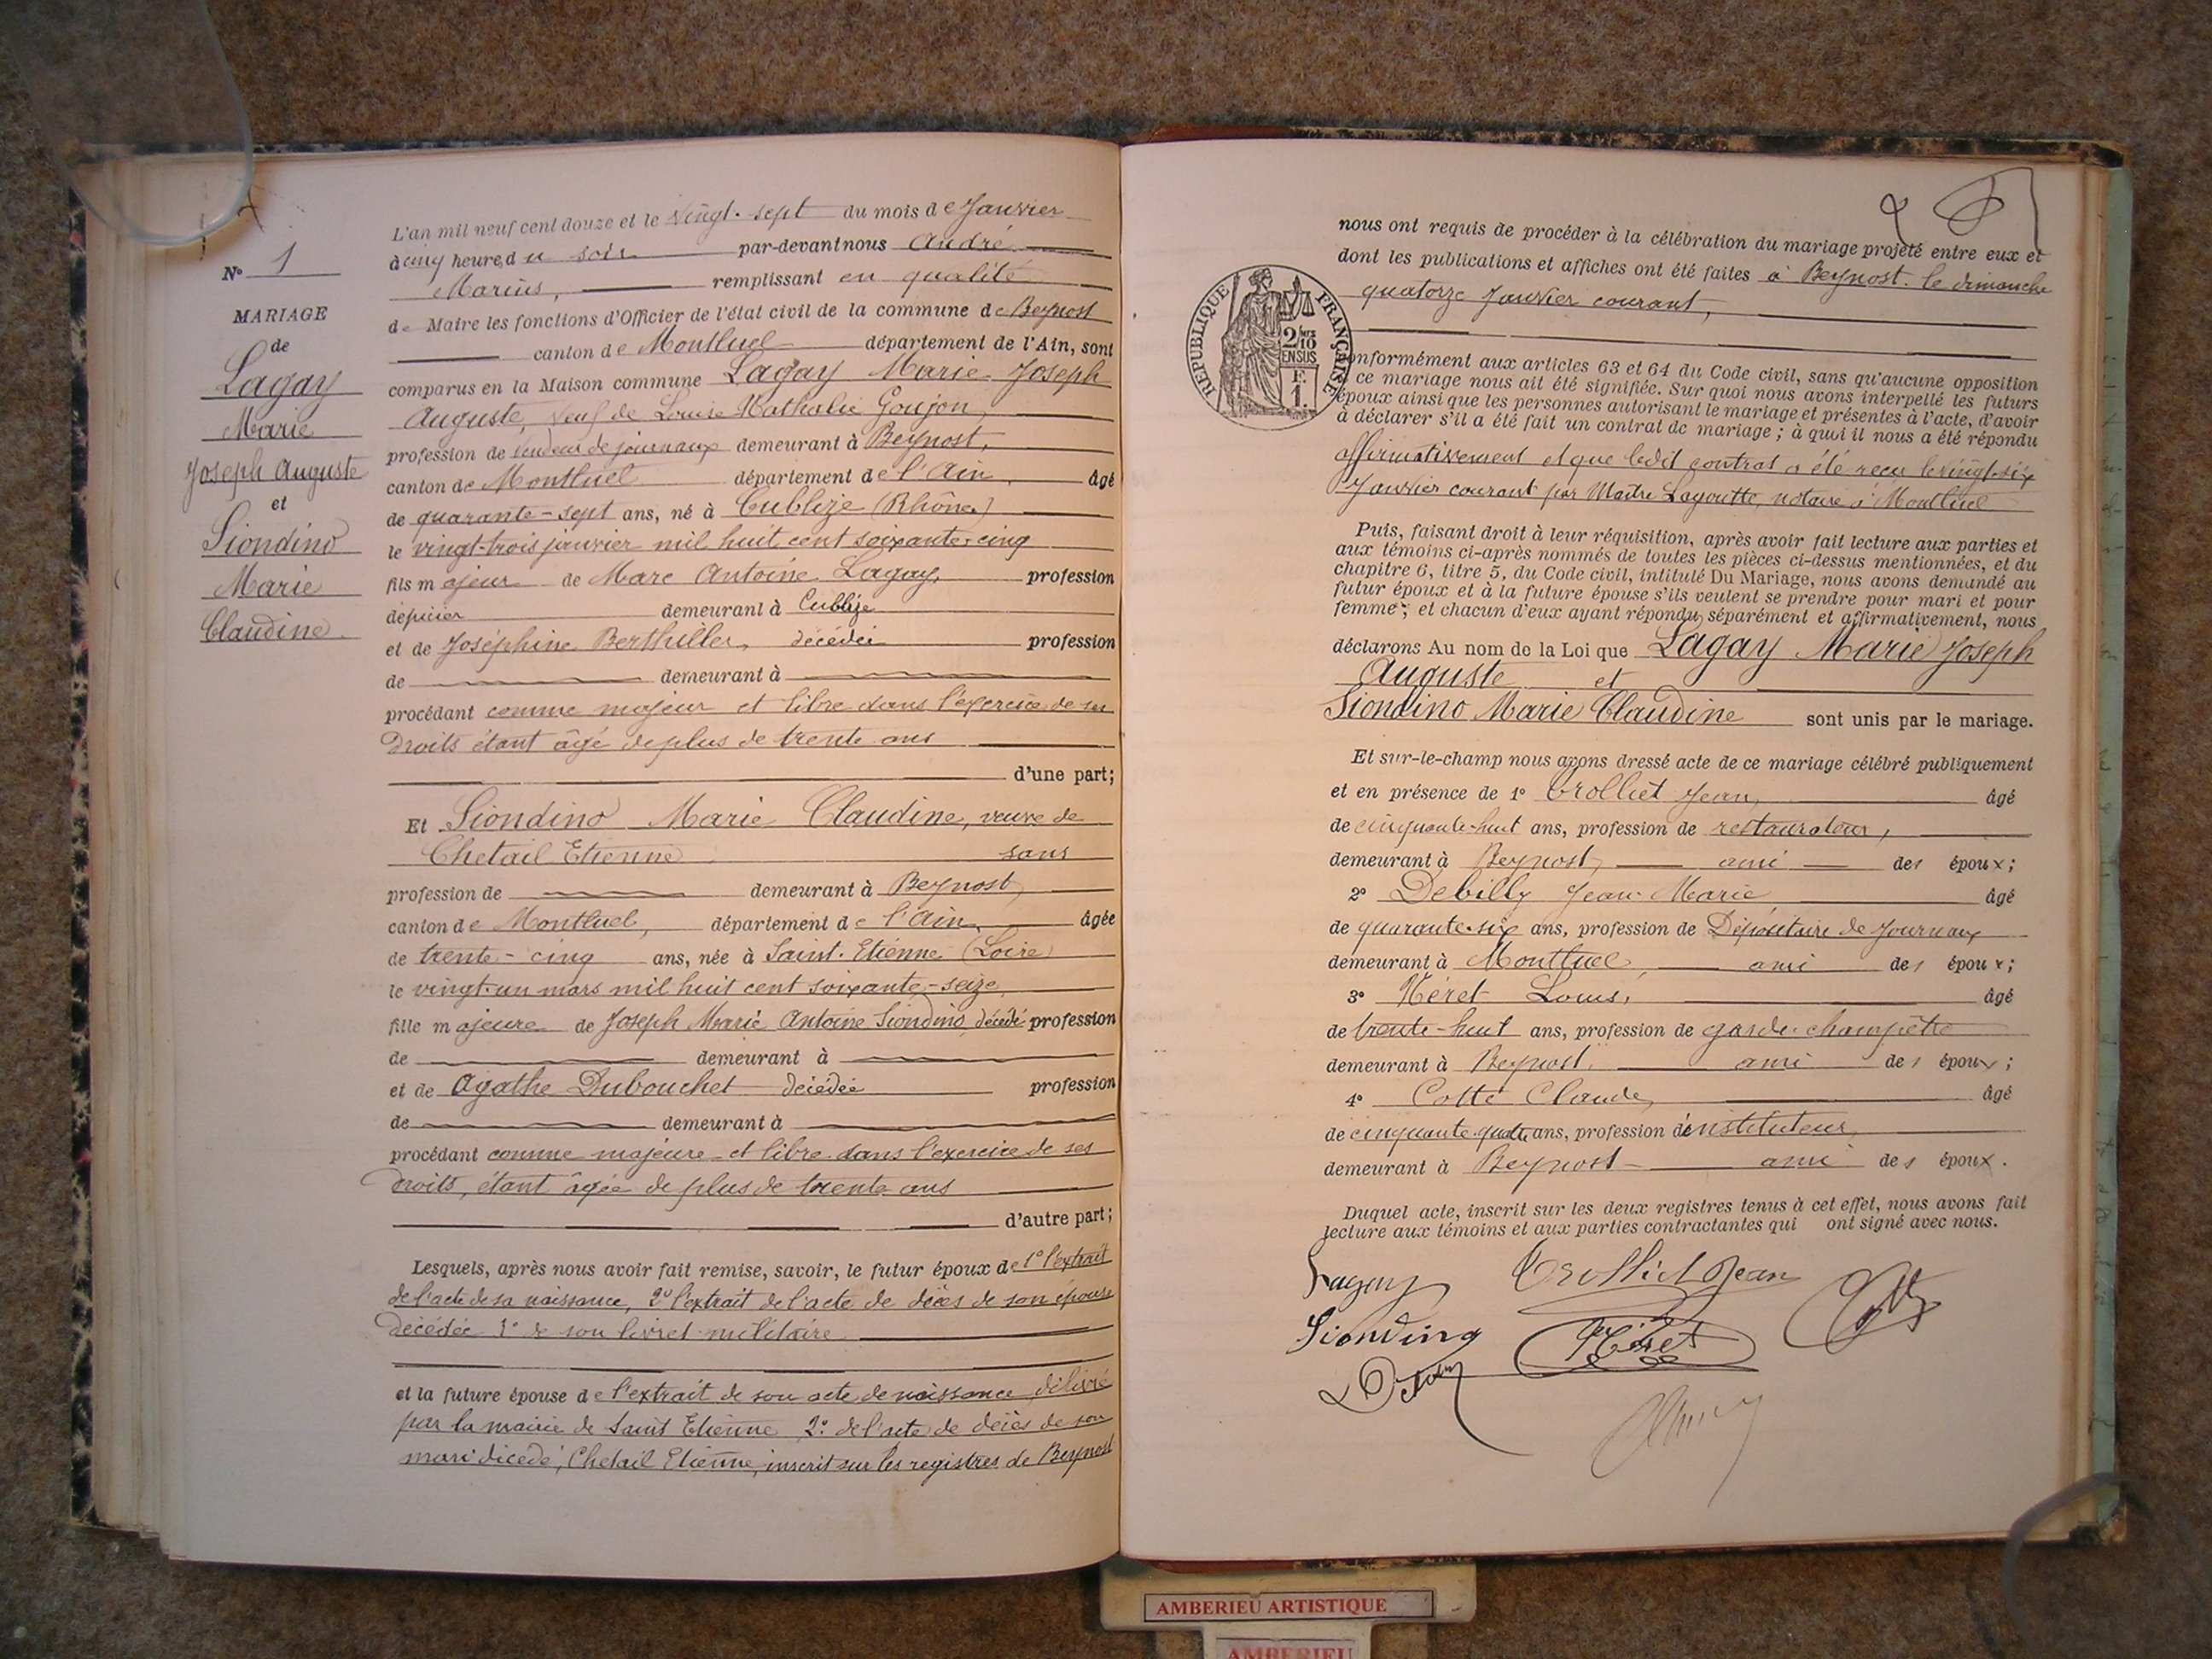 N° 1
MARIAGE
de
Lagay
Marie
Joseph Auguste
et
Siondino
Marie
Claudine
L'an mil neuf cent douze et le vingt-sept du mois de Janvier
à cinq heure du soir par-devant nous André
Marius, remplissant en qualité
de Maire les fonctions d'Officier de l'état civil de la commune de Beynost
canton de Montluel département de l'Ain, sont
comparus en la Maison commune Lagay Marie Joseph
Auguste, veuf de Louise Nathalie Goujon,
profession de vendeur de journaux demeurant à Beynost,
canton de Montluel département de l'Ain, âgé
de quarante-sept ans, né à Cublize (Rhône)
le vingt-trois janvier mil huit cent soixante-cinq
fils majeur de Marc Antoine Lagay, profession
d'épicier demeurant à Cublize
et de Joséphine Berthiller, décédée profession
de demeurant à
procédant comme majeur et libre dans l'exercice de ses
Droits étant âgé de plus de trente ans
d'une part;
Et Siondino Marie Claudine, veuve de
Chetail Etienne sans
profession de demeurant à Beynost,
canton de Montluel, département de l'Ain, âgée
de trente-cinq ans, née à Saint-Etienne (Loire)
le vingt-un mars mil huit cent soixante-seize,
fille majeure de Joseph Marie Antoine Siondino, décédé profession
de demeurant à
et de Agathe Dubouchet décédée profession
de demeurant à
procédant comme majeure et libre dans l'exercice de ses
droits, étant âgée de plus de trente ans
d'autre part;
Lesquels, après nous avoir fait remise, savoir, le futur époux de 1° l'extrait
de l'acte de sa naissance, 2° l'extrait de l'acte de décès de son épouse
décédée 3° de son livret militaire
et la future épouse de l'extrait de son acte de naissance délivré
par la mairie de Saint Etienne 2° de l'acte de décès de son
mari décédé, Chetail Etienne, inscrit sur les registres de Beynost
2
nous ont requis de procéder à la célébration du mariage projeté entre eux et
dont les publications et affiches ont été faites à Beynost le dimanche
quatorze Janvier courant,
REPUBLIQUE FRANÇAISE
2/10 EN SUS
F.
1.
onformément aux articles 63 et 64 du Code civil, sans qu'aucune opposition
ce mariage nous ait été signifiée. Sur quoi nous avons interpellé les futurs
époux ainsi que les personnes autorisant le mariage et présentes à l'acte, d'avoir
à déclarer s'il a été fait un contrat de mariage; à quoi il nous a été répondu
affirmativement et que ledit contrat a été reçu le vingt-six
Janvier courant par Maître Lagoutte, notaire à Montluel
Puis, faisant droit à leur réquisition, après avoir fait lecture aux parties et
aux témoins ci-après nommés de toutes les pièces ci-dessus mentionnées, et du
chapitre 6, titre 5, du Code civil, intitulé Du Mariage, nous avons demandé au
futur époux et à la future épouse s'ils veulent se prendre pour mari et pour
femme; et chacun d'eux ayant répondu séparément et affirmativement, nous
déclarons Au nom de la Loi que Lagay Marie Joseph
Auguste et
Siondino Marie Claudine sont unis par le mariage.
Et sur-le-champ nous avons dressé acte de ce mariage célébré publiquement
et en présence de 1° Trolliet Jean, âgé
de cinquante-huit ans, profession de restaurateur,
demeurant à Beynost, ami des époux;
2° Debilly Jean Marie âgé
de quarante-six ans, profession de Dépositaire de Journaux
demeurant à Montluel, ami des époux;
3° Néret Louis, âgé
de trente-huit ans, profession de garde-champêtre
demeurant à Beynost. ami des époux;
4° Cotte Claude, âgé
de cinquante-quatre ans, profession d'instituteur,
demeurant à Beynost ami des époux.
Duquel acte, inscrit sur les deux registres tenus à cet effet, nous avons fait
lecture aux témoins et aux parties contractantes qui ont signé avec nous.
Lagay Trolliet Jean
Siondino Néret
AMBERIEU ARTISTIQUE
AMBERIEU